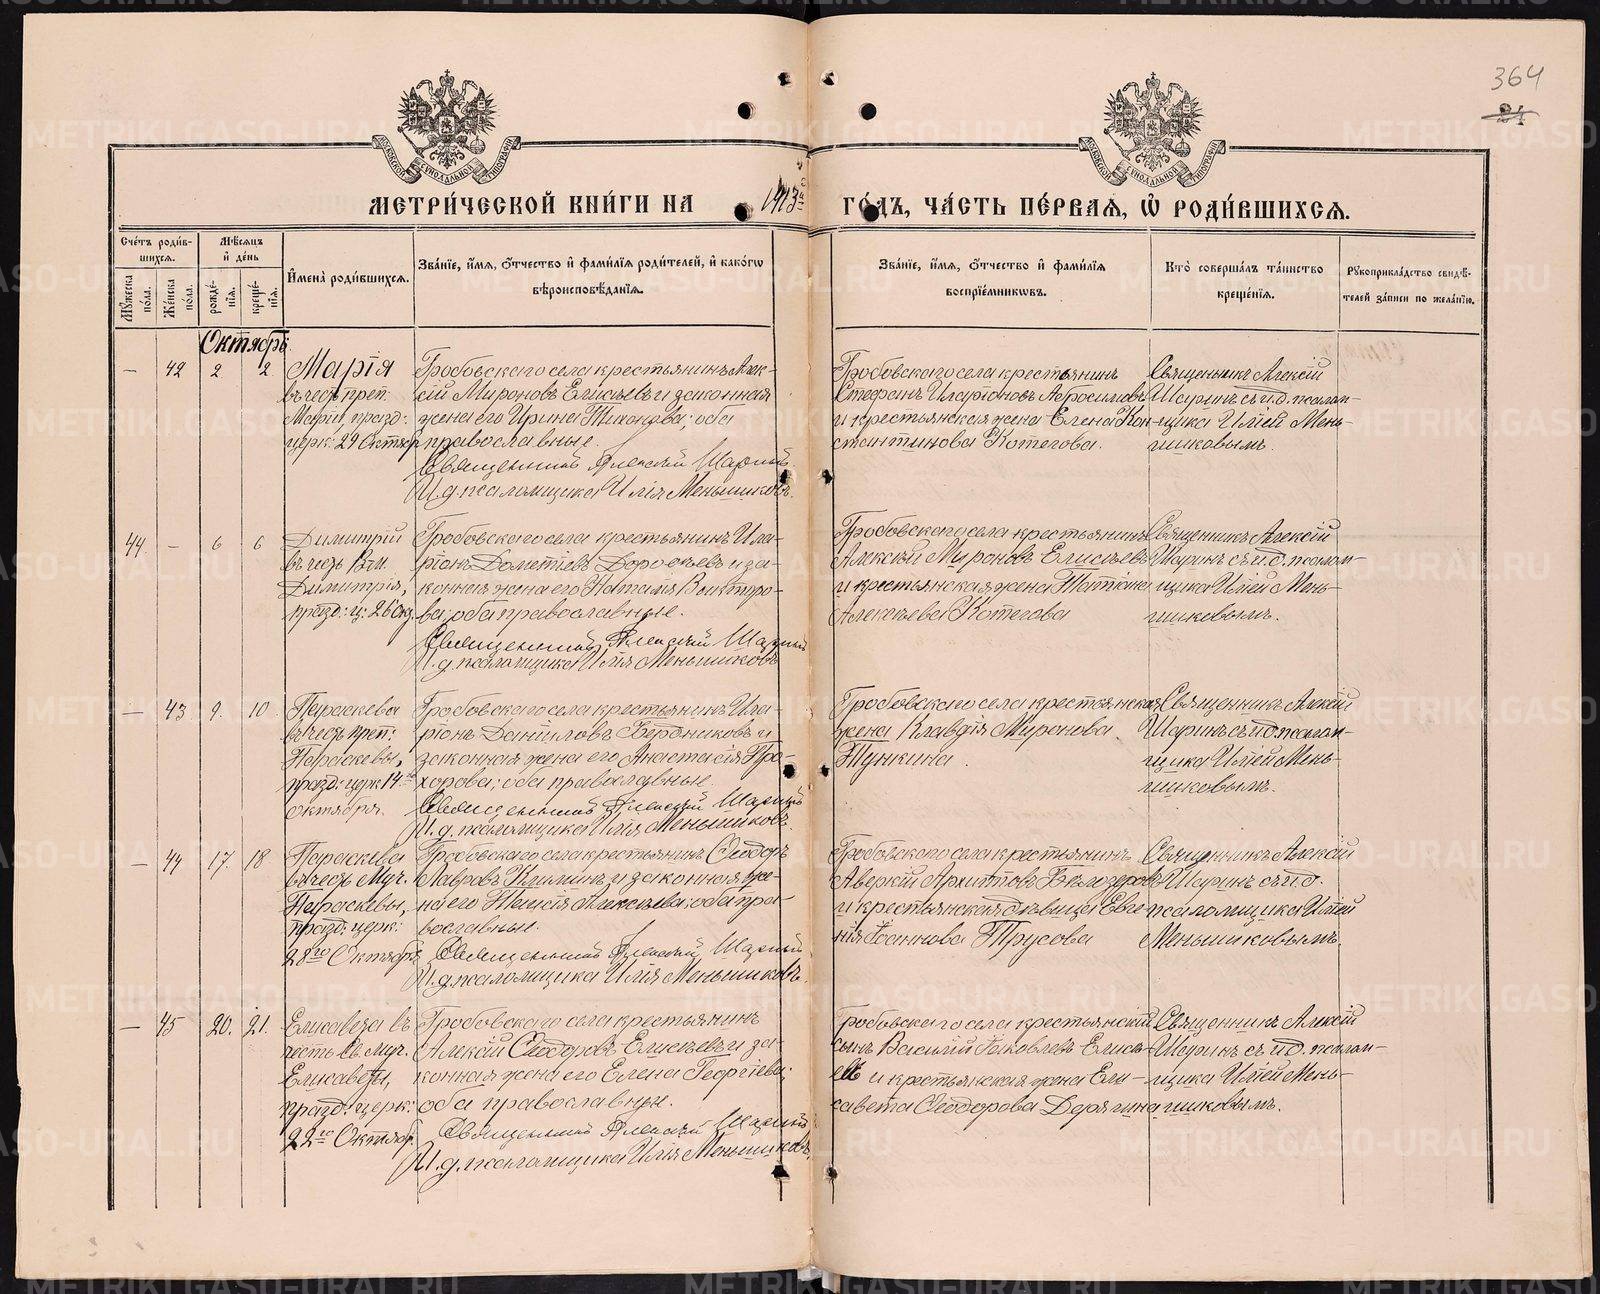 364
21
МОСКОВСКОЙ СѴНОДАЛЬНОЙ ТИПОГРАФІИ
МОСКОВСКОЙ СѴНОДАЛЬНОЙ ТИПОГРАФІИ
МЕТРИ́ЧЕСКОЙ КНИ́ГИ НА 1913й ГО́ДЪ, ЧА́СТЬ ПЕ́РВАЯ, Ѡ҆ РОДИ́ВШИХСЯ.
Сче́тъ роди́в-
шихся.
Мꙋ́жеска
пола.
Же́нска
пола.
Мѣ́сяцъ
и҆ де́нь
рожде́-
нїя.
креще́-
нїя.
И҆мена̀ роди́вшихся.
Зва́нїе, и҆́мя, ѻ҆́тчество и҆ фами́лїя роди́телей, и҆ како́гѡ
вѣроисповѣ́данїя.
Зва́нїе, и҆́мя, ѻ҆́тчество и҆ фами́лїя
воспрїе́мникѡвъ.
Кто̀ соверша́лъ та́инство
креще́нїя.
Рꙋкоприкла́дство свидѣ́-
телей за́писи по жела́нїю.
Октябрь
— 42 2 2
Марія
въ честь преп.
Маріи, празд:
церк: 29 Октяр
Гробовскаго села крестьянинъ Алек-
сій Мироновъ Елисѣевъ и законная
жена его Ирина Тихонова; оба
православные.
Священникъ Алексій Шаринъ
И. д. псаломщика Илія Меньшиковъ.
Гробовскаго села крестьянинъ
Стефанъ Иларіоновъ
и крестьянская жена Елена Кон-
стантинова Котегова.
Священникъ Алексій
Шаринъ съ и. д. псалом-
щика Иліей Мень-
шиковымъ.
44 — 6 6
Димитрій
въ честь Вм.
Димитрія,
празд: ц: 26 Окт.
Гробовскаго села крестьянинъ Ила-
ріонъ Дометіевъ Дороѳѣевъ и за-
конная жена его Наталія Викторо-
ва; оба православные.
Священникъ Алексій Шаринъ
И. д. псаломщика Илія Меньшиковъ
Гробовскаго села крестьянинъ
Алексѣй Мироновъ Елисѣевъ
и крестьянская жена Татіана
Алексѣева Котегова
Священникъ Алексій
Шаринъ съ и. д. псалом-
щика Иліей Мень-
шиковымъ.
— 43 9. 10
Параскева
въ честь преп:
Параскевы,
празд: церк: 14го
октября.
Гробовскаго села крестьянинъ Ила-
ріонъ Даниловъ Бердниковъ и
законная жена его Анастасія Про-
хорова; оба православные
Священникъ Алексій Шаринъ
И. д. псаломщика Илія Меньшиковъ.
Гробовскаго села крестьянская
жена Клавдія Миронова
Тункина.
Священникъ Алексій
Шаринъ съ и. д. псалом-
щика Иліей Мень-
шиковымъ.
— 44 17. 18
Параскева
въ честь Муч.
Параскевы,
празд: церк:
28го Октября
Гробовскаго села крестьянинъ Ѳеодоръ
Лавровъ Климинъ и законная же-
на его Таисія Алексѣева; оба пра-
вославные.
Священникъ Алексій Шаринъ
И. д. псаломщика Илія Меньшиковъ.
Гробовскаго села крестьянинъ
Аверкій Архиповъ Бѣлозеровъ
и крестьянская дѣвица Евге-
нія Іоаннова Трусова
Священникъ Алексій
Шаринъ съ и. д.
псаломщика Иліей
Меньшиковымъ.
— 45 20. 21.
Елисавета въ
честь Св. Муч.
Елисаветы,
празд: церк:
22го Октября.
Гробовскаго села крестьянинъ
Алексій Ѳеодоровъ Елисѣевъ и за-
конная жена его Елена Георгіева;
оба православны.
Священникъ Алексій Шаринъ
И. д. псаломщика Илія Меньшиковъ
Гробовскаго села крестьянскій
сынъ Василій Іаковлевъ Елисѣ-
евъ и крестьянская жена Ели-
савета Ѳеодорова Дерягина
Священникъ Алексій
Шаринъ съ и. д. псалом-
щика Иліей Мень-
шиковымъ.
METRIKI.GASO-URAL.RU